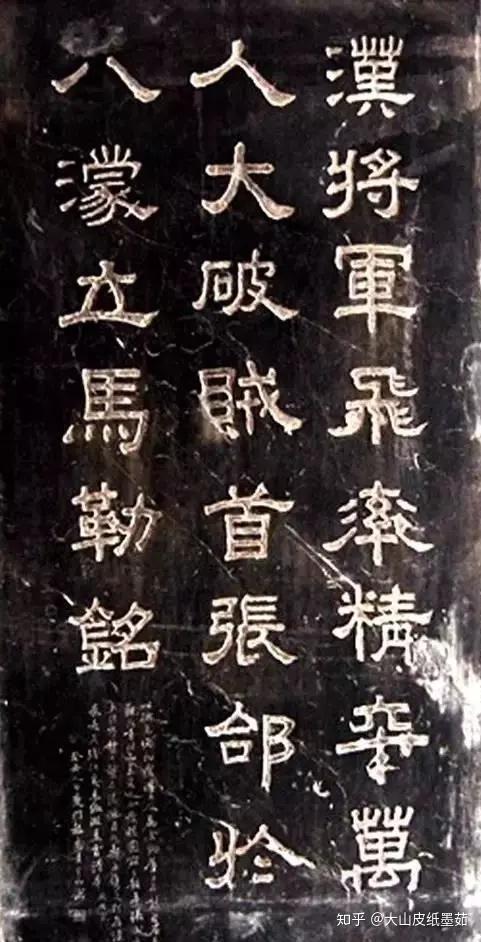 漢將軍飛率精卒萬
人大破賊首張郃於
八濛立馬勒銘
知乎 @大山皮纸墨茹